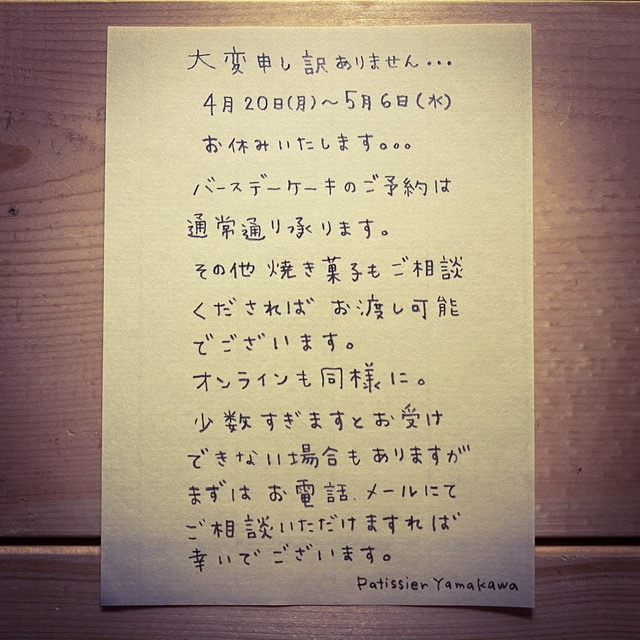 大変申し訳ありません...
4月20日(月)～5月6日(水)
お休みいたします。。。
バースデーケーキのご予約は
通常通り承ります。
その他 焼き菓子もご相談
くだされば お渡し可能
でございます。
オンラインも同様に。
少数すぎますとお受け
できない場合もありますが
まずは お電話、メールにて
ご相談いただけますれば
幸いでございます。
Patissier Yamakawa